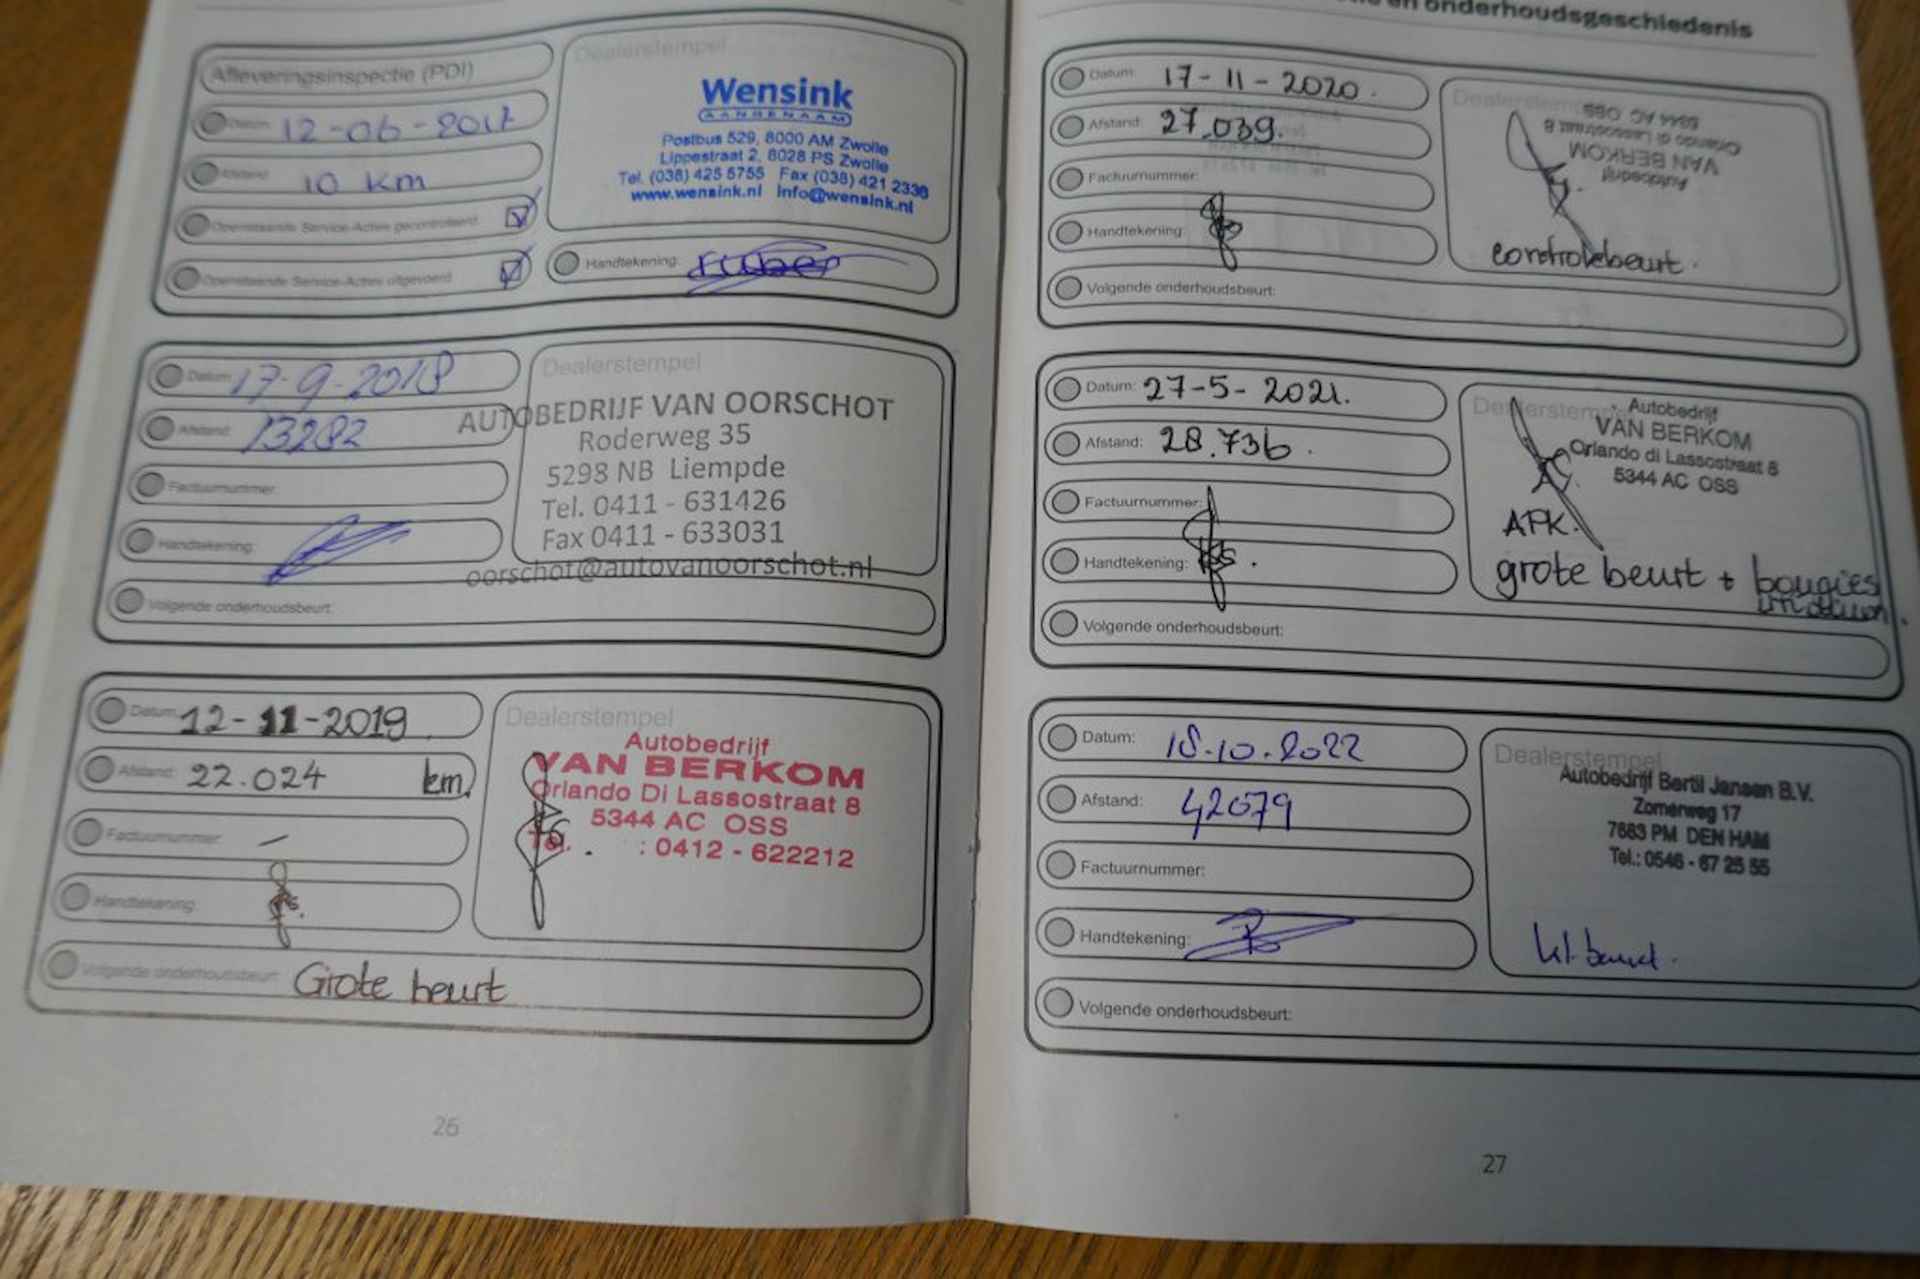 Afleveringsinspectie (PDI)
Datum: 12-06-2017
Afstand: 10 km
Openstaande Service-Acties gecontroleerd
Openstaande Service-Acties uitgevoerd
Dealerstempel
Wensink
AANGENAAM
Postbus 529, 8000 AM Zwolle
Lippestraat 2, 8028 PS Zwolle
Tel. (038) 425 5755 Fax (038) 421 2336
www.wensink.nl info@wensink.nl
Handtekening:
Datum: 17-9-2018
Afstand: 13282
Factuurnummer:
Handtekening:
Volgende onderhoudsbeurt:
Dealerstempel
AUTOBEDRIJF VAN OORSCHOT
Roderweg 35
5298 NB Liempde
Tel. 0411 - 631426
Fax 0411 - 633031
oorschot@autovanoorschot.nl
Datum: 12-11-2019
Afstand: 22.024 km
Factuurnummer: -
Handtekening:
Volgende onderhoudsbeurt: Grote beurt
Dealerstempel
Autobedrijf
VAN BERKOM
Orlando Di Lassostraat 8
5344 AC OSS
Tel. : 0412 - 622212
26
en onderhoudsgeschiedenis
Datum: 17-11-2020.
Afstand: 27.039.
Factuurnummer:
Handtekening:
Volgende onderhoudsbeurt:
Dealerstempel
Autobedrijf
VAN BERKOM
Orlando di Lassostraat 8
5344 AC OSS
controlebeurt.
Datum: 27-5-2021.
Afstand: 28.736.
Factuurnummer:
Handtekening:
Volgende onderhoudsbeurt:
Dealerstempel
Autobedrijf
VAN BERKOM
Orlando di Lassostraat 8
5344 AC OSS
APK.
grote beurt + bougies
Datum: 18-10-2022
Afstand: 42079
Factuurnummer:
Handtekening:
Volgende onderhoudsbeurt:
Dealerstempel
Autobedrijf Bertil Jansen B.V.
Zomerweg 17
7683 PM DEN HAM
Tel.: 0546 - 67 25 55
kl. beurt.
27